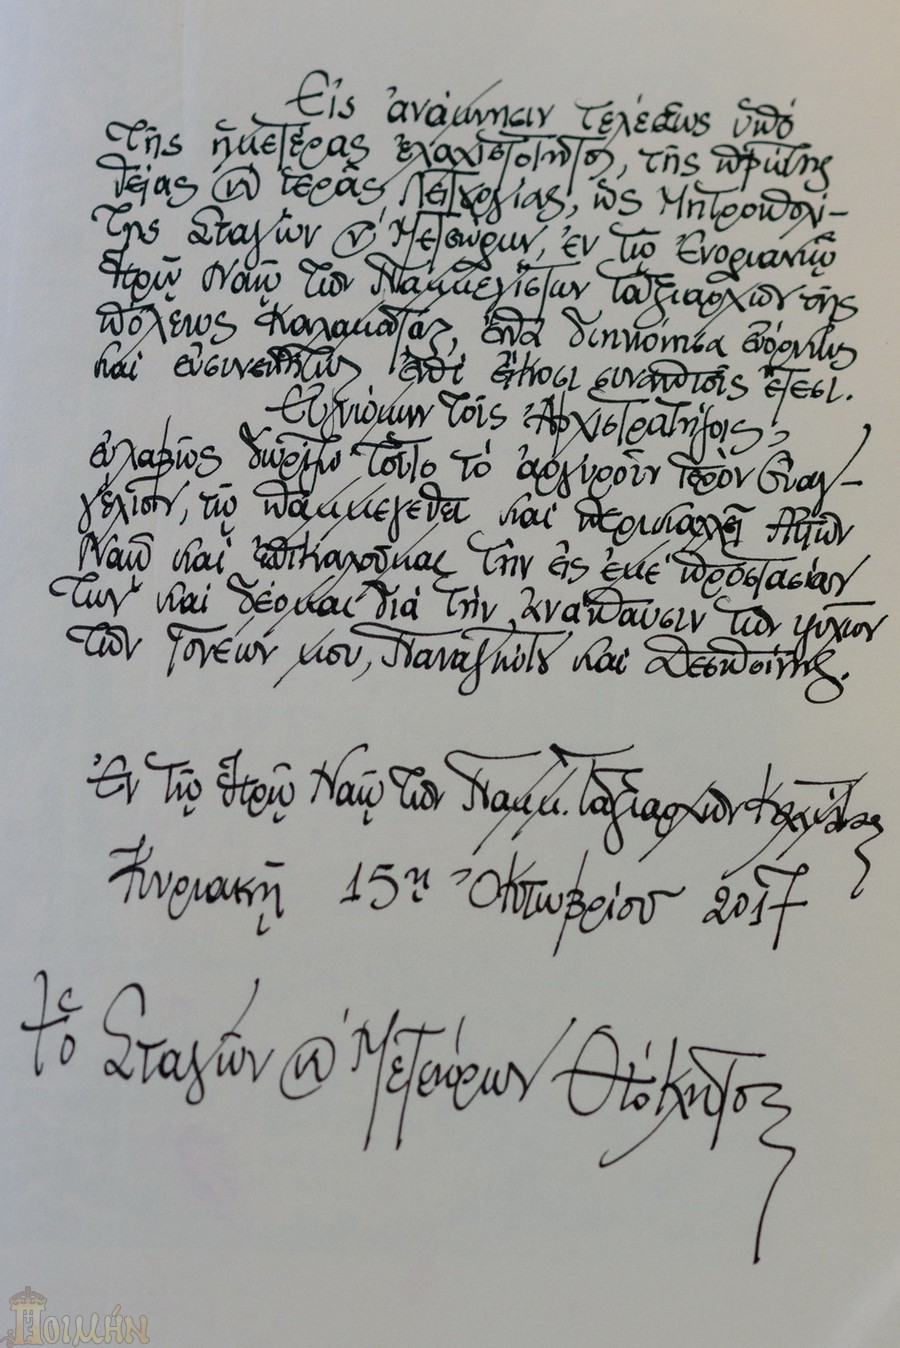 Εἰς ἀνάμνησιν τελέσεως ὑπὸ
τῆς ἡμετέρας ἐλαχιστότητος, τῆς πρώτης
θείας κ ἱερᾶς Λειτουργίας, ὡς Μητροπολί-
της Σταγῶν κ Μετεώρων, ἐν τῷ Ἐνοριακῷ
Ἱερῷ Ναῷ τῶν Παμμεγίστων Ταξιαρχῶν τῆς
πόλεως Καλαμπάκας, ἔνθα διηκόνησα εὐόρκως
καὶ εὐσυνειδήτως ἐπὶ εἴκοσι συναπτοῖς ἔτεσι.
Εὐγνώμων τοῖς Ἀρχιστρατήγοις,
εὐλαβῶς δωρίζω τοῦτο τὸ ἀργυροῦν Ἱερὸν Εὐαγ-
γέλιον, τῷ παμμεγέθει καὶ περικαλλεῖ Αὐτῶν
Ναῷ καὶ ἐπικαλοῦμαι τὴν εἰς ἐμὲ προστασίαν
των καὶ δέομαι διὰ τὴν ἀνάπαυσιν τῶν ψυχῶν
τῶν Γονέων μου, Παναγιώτου καὶ Δεσποίνης.
Ἐν τῷ Ἱερῷ Ναῷ τῶν Παμμ. Ταξιαρχῶν Καλαμπάκας
Κυριακῇ 15ῃ Ὀκτωβρίου 2017
†ὁ Σταγῶν κ Μετεώρων Θεόκλητος
ΠΟΙΜΗΝ